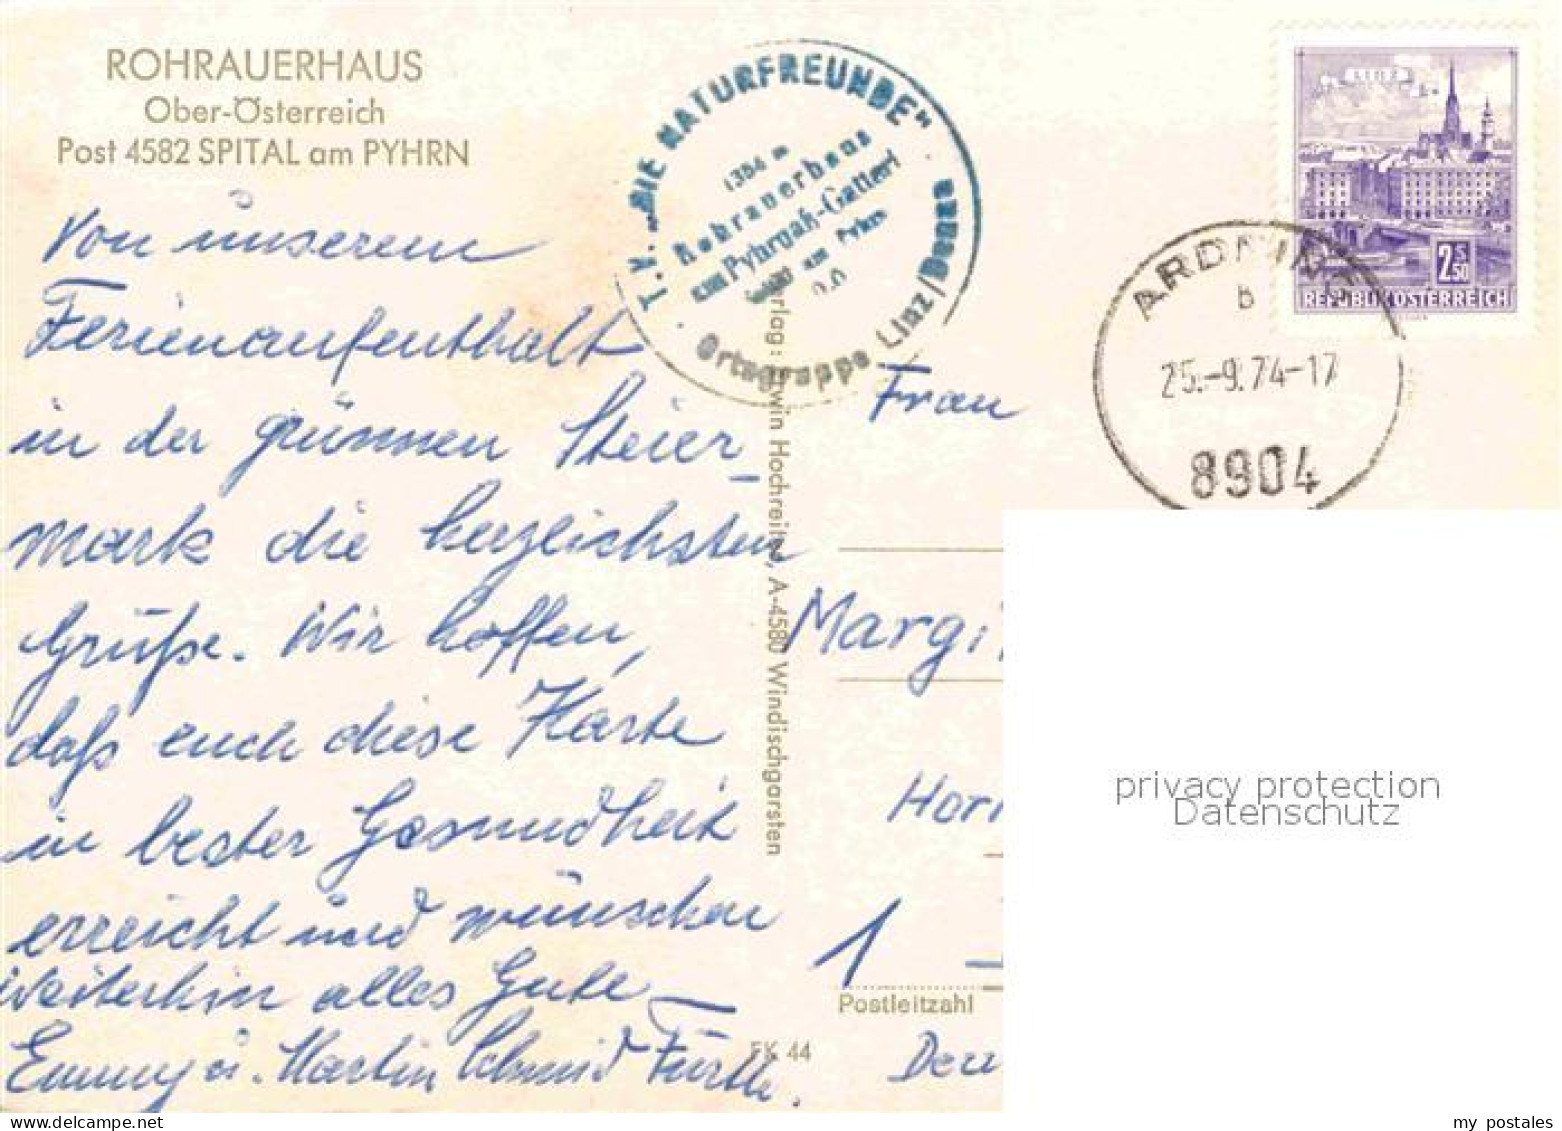 ROHRAUERHAUS
Ober-Österreich
Post 4582 SPITAL am PYHRN
Von unserem
Ferienaufenthalt
in der grünnen Steier-
mark die herzlichsten
Grüße. Wir hoffen,
daß euch diese Karte
in bester Gesundheit
erreicht und wünschen
weiterhin alles Gute –
Emmy u. Martin Schmid Fürth.
T.V. „DIE NATURFREUNDE"
1354 m
Rohrauerhaus
am Pyhrgaß-Gatterl
am Pyhrn
Ortsgruppe Linz/Donau
erlag: Erwin Hochreiter, A-4580 Windischgarsten
FK 44
LINZ
2.50 S
REPUBLIK ÖSTERREICH
ARDNING
b
25.-9.74-17
8904
Frau
Margi
Horn
1
Postleitzahl
Deu
privacy protection
Datenschutz
my postales